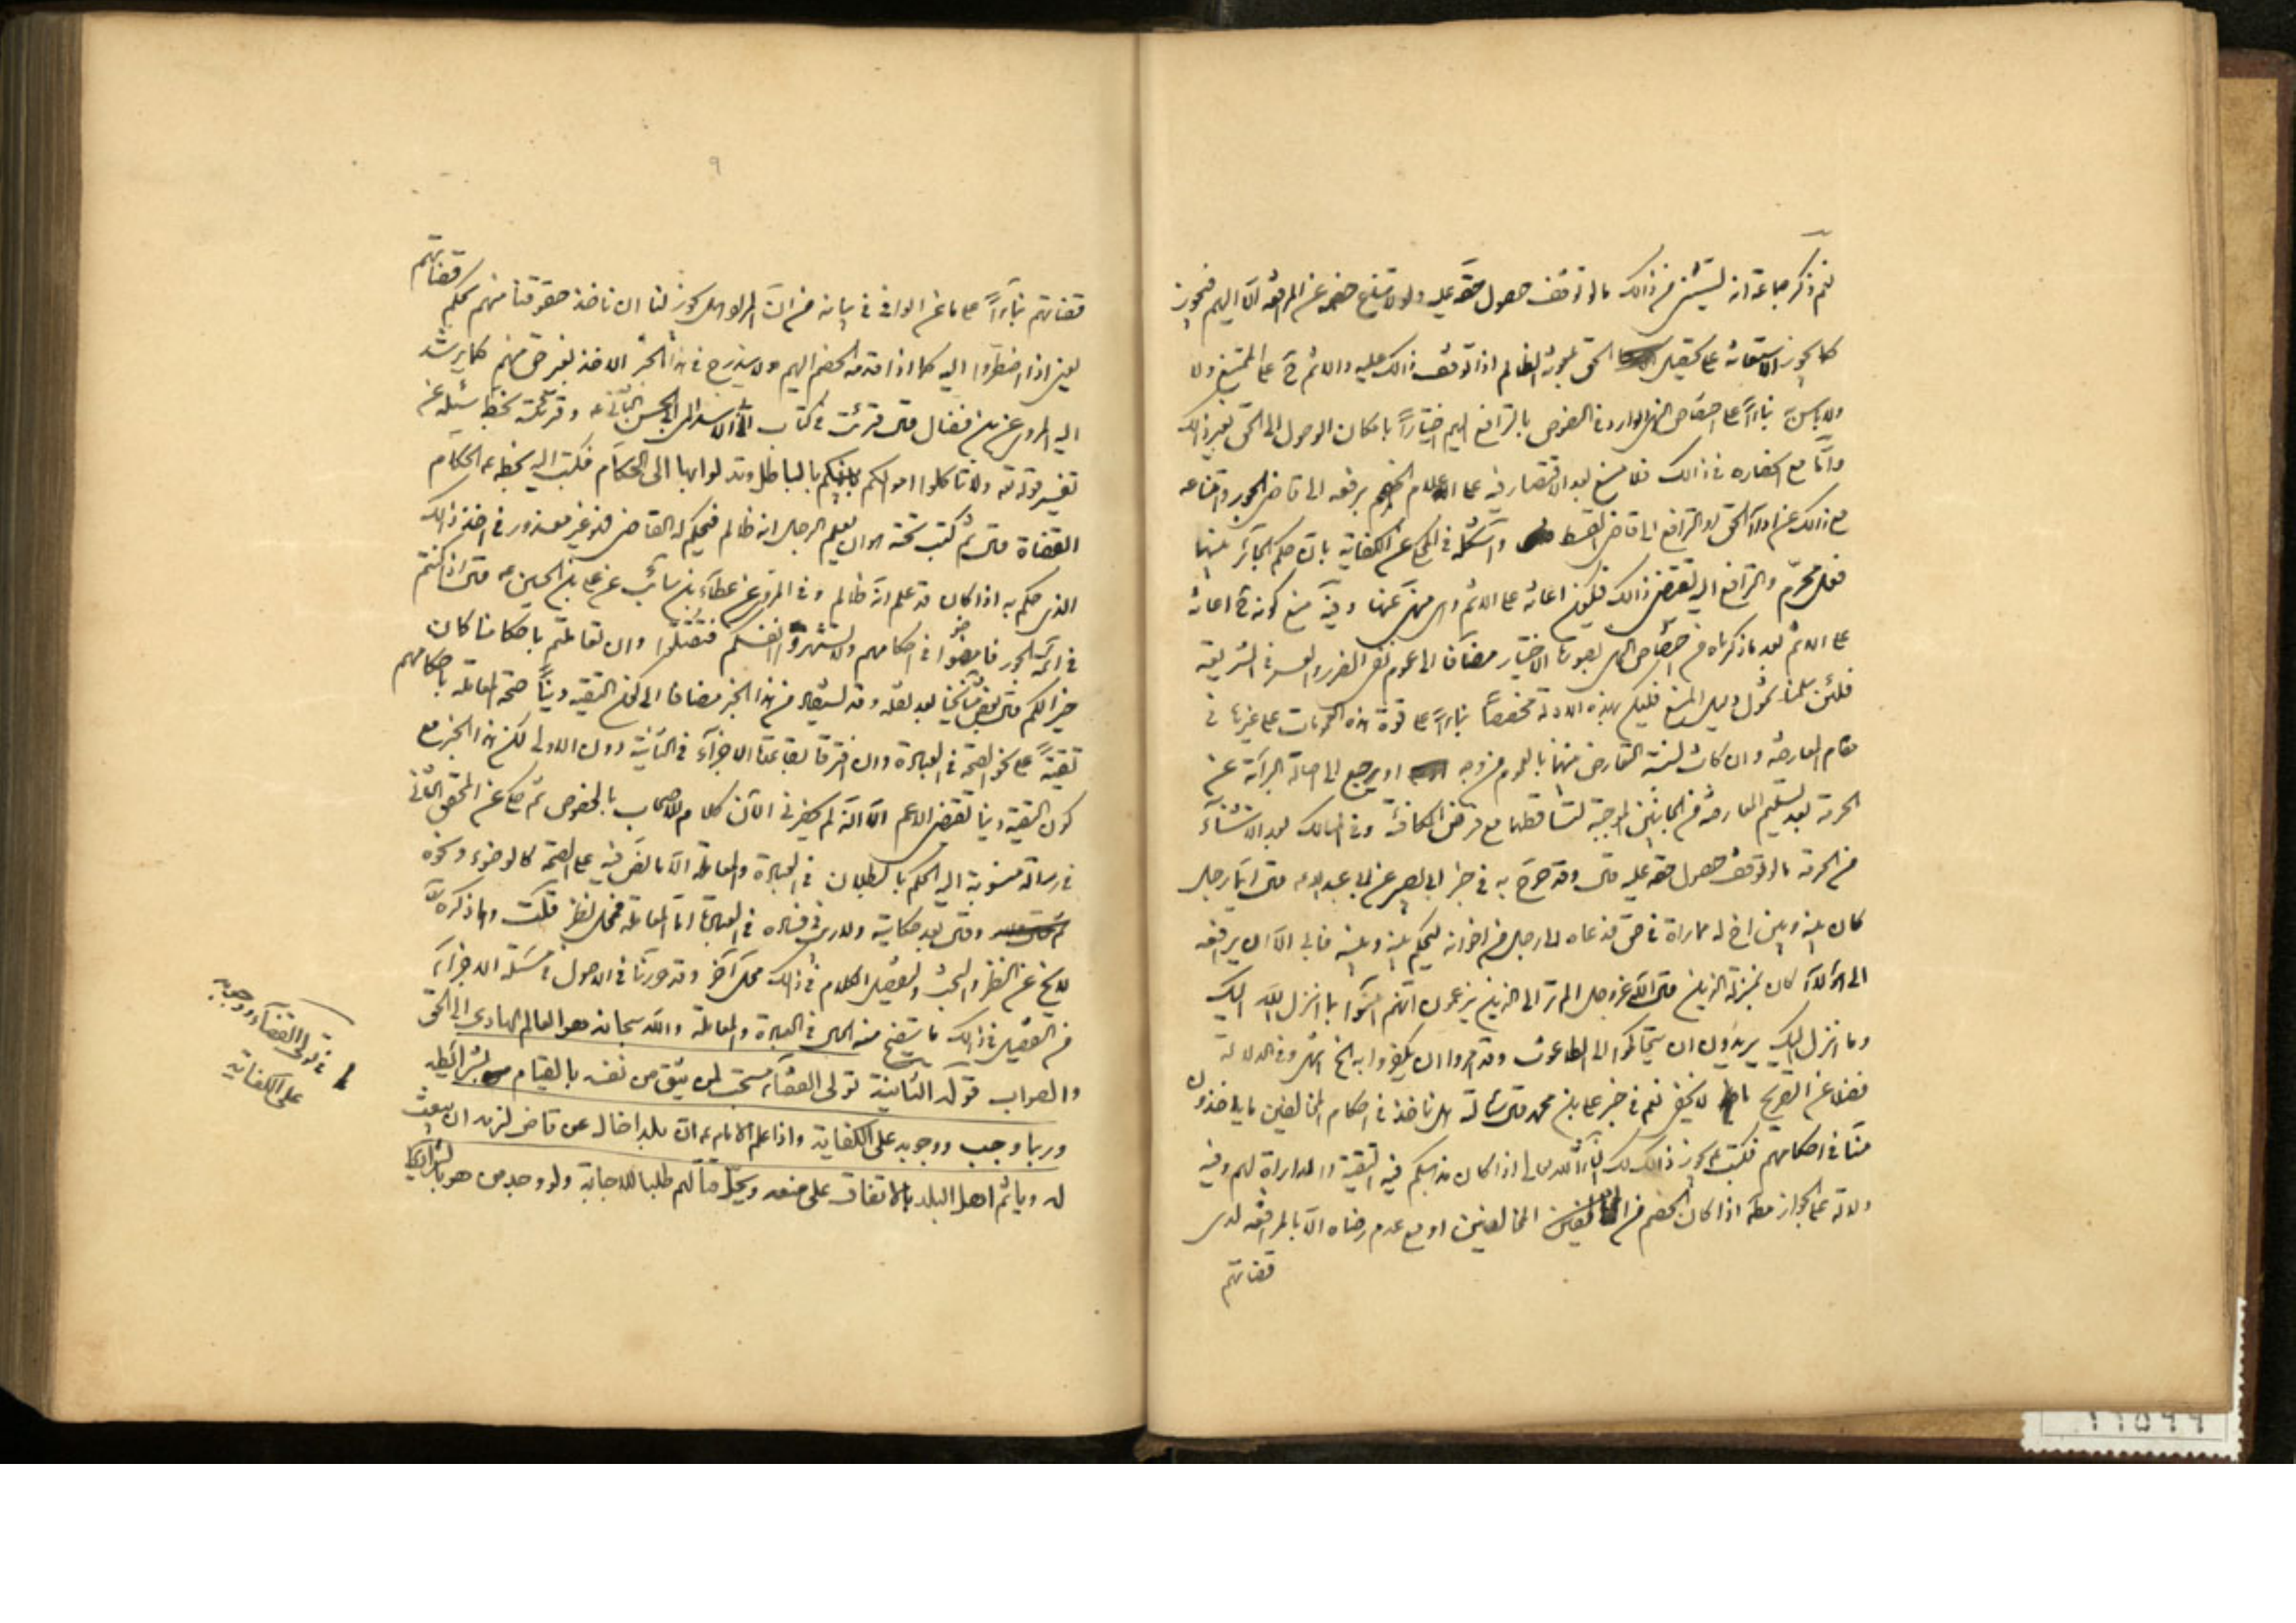 نعم ذكر جماعة انه يستثنى من ذالك ما لو توقف حصول حقه عليه ولو لامتناع خصمه عن المرافعة الا اليهم فيجوز
كما يجوز الاستعانة على تحصيل الحق بغير الظالم اذا توقف ذالك عليه والاثم ح على الممتنع ولا
ولا باس بناءً على اختصاص النهى الوارد في النصوص بالترافع اليهم اختياراً بامكان الوصول الى الحق بغير ذالك
وامّا مع انحصاره في ذالك فلا منع بعد الاقتصار فيه على اعلام الخصم برفعه الى قاضى الجور وامتناعه
مع ذالك عن اداء الحق او الترافع الى قاضى القسط واستشكله في المحكى عن الكفاية بان حكم الجائر بينهما
فعل محرّم والترافع اليه يقتضى ذالك فيكون اعانة على الاثم وهى منهى عنها وفيه منع كونه ح اعانة
على الاثم بعد ما ذكرناه من اختصاص النهى بصورة الاختيار مضافا الى عموم نفى الضرر والعسر في الشريعة
فلئن سلمنا شمول دليل المنع فليكن بهذه الادلة مخصصاً بناءً على قوة هذه العمومات على غيرها في
مقام المعارضة وان كانت نسبة التعارض بينهما بالعموم من وجه او يرجع الى اصالة البرائة عن
الحرمة بعد تسليم المعارضة من الجانبين الموجبة لتساقطهما مع فرض المكافئة وفى المسالك بعد الاستثناء
من الحرمة ما لو توقف حصول حقه عليه قال وقد صرّح به في خبر ابى بصير عن ابى عبد الله قال ايّما رجل
كان بينه وبين اخ له مماراة في حق فدعاه الى رجل من اخوانه ليحكم بينه وبينه فابى الا ان يرافعه
الى هؤلاء كان بمنزلة الذين قال الله عزوجل الم تر الى الذين يزعمون انهم آمنوا بما انزل اليك
وما انزل اليك يريدون ان يتحاكموا الى الطاغوت وقد امروا ان يكفروا به الخ انتهى وفى الدلالة
فضلا عن التصريح ما لا يخفى نعم في خبر على بن محمد قال سئالته هل ناخذ في احكام المخالفين ما ياخذون
منّا في احكامهم فكتب يجوز ذالك لك انشاء الله تعالى اذا كان مذهبكم فيه التقية والمداراة لهم وفيه
دلالة على الجواز مطلقا اذا كان الخصم من المخالفين او مع عدم رضاه الا بالمرافعة لدى
قضاتهم
٩
قضاتهم بناءً على ما عن الوافى في بيانه من ان المراد هل يجوز لنا ان ناخذ حقوقنا منهم بحكم قضاتهم
يعنى اذا اضطرّوا اليه كما اذا قدمه الخصم اليهم ولا يندرج في هذا الخبر الاخذ بغير حق منهم كما يرشد
اليه المروى عن بن فضال قال قرئت في كتاب ابى الاسد الى ابى الحسن الثانى ع وقرئته بخطه سئله عن
تفسير قوله تع ولا تاكلوا اموالكم بينكم بالباطل وتدلوا بها الى الحكام فكتب اليه بخطه ع الحكام
القضاة قال ثم كتب تحته هو ان يعلم الرجل انه ظالم فيحكم له القاضى فهو غير معذور في اخذ ذالك
الذى حكم به اذا كان قد علم انه ظالم وفى المروى عن عطاء بن سائب عن على بن الحسين ع قال اذا كنتم
في ائمة الجور فامضوا في احكامهم ولا تشهروا انفسكم فتقتلوا وان تعاملتم باحكامنا كان
خيراً لكم قال بعض مشايخنا بعد نقله وقد يستفاد من هذا الخبر مضافا الى كون التقية ديناً صحة المعاملة باحكامهم
تقيّةً على نحو الصحة في العبادة وان افترقا بقاعدة الاجزاء في الثانية دون الاولى لكن هذا الخبر مع
كون التقية دينا تقتضى الاعم الا انه لم يحضرنى الآن كلام للاصحاب بالخصوص ثم حكى عن المحقق الثانى
في رسالة منسوبة اليه الحكم بالبطلان في العبادة والمعاملة الا ما نص فيه على الصحة كالوضوء ونحوه
وقال بعد حكايته ولا ريب في فساده في العبادة امّا المعاملة فمحل نظر قلت وما ذكره
لا يخ عن النظر والبحث وتفصيل الكلام في ذالك محل آخر وقد حررنا في الاصول في مسئلة الاجزاء
من التفصيل في ذالك ما يتضح منه الحال في العبادة والمعاملة والله سبحانه هو العالم الهادى الى الحق
والصواب قوله الثانية تولى القضاء مستحب لمن يثق من نفسه بالقيام بشرائطه
وربما وجب ووجوبه على الكفاية واذا علم الامام ع ان بلدا خال عن قاض لزمه ان يبعث
له وياثم اهل البلد بالاتفاق على منعه ويحل قتالهم طلبا للاجابة ولو وجد من هو بالشرايط
في تولى القضاء ووجوبه
على الكفاية